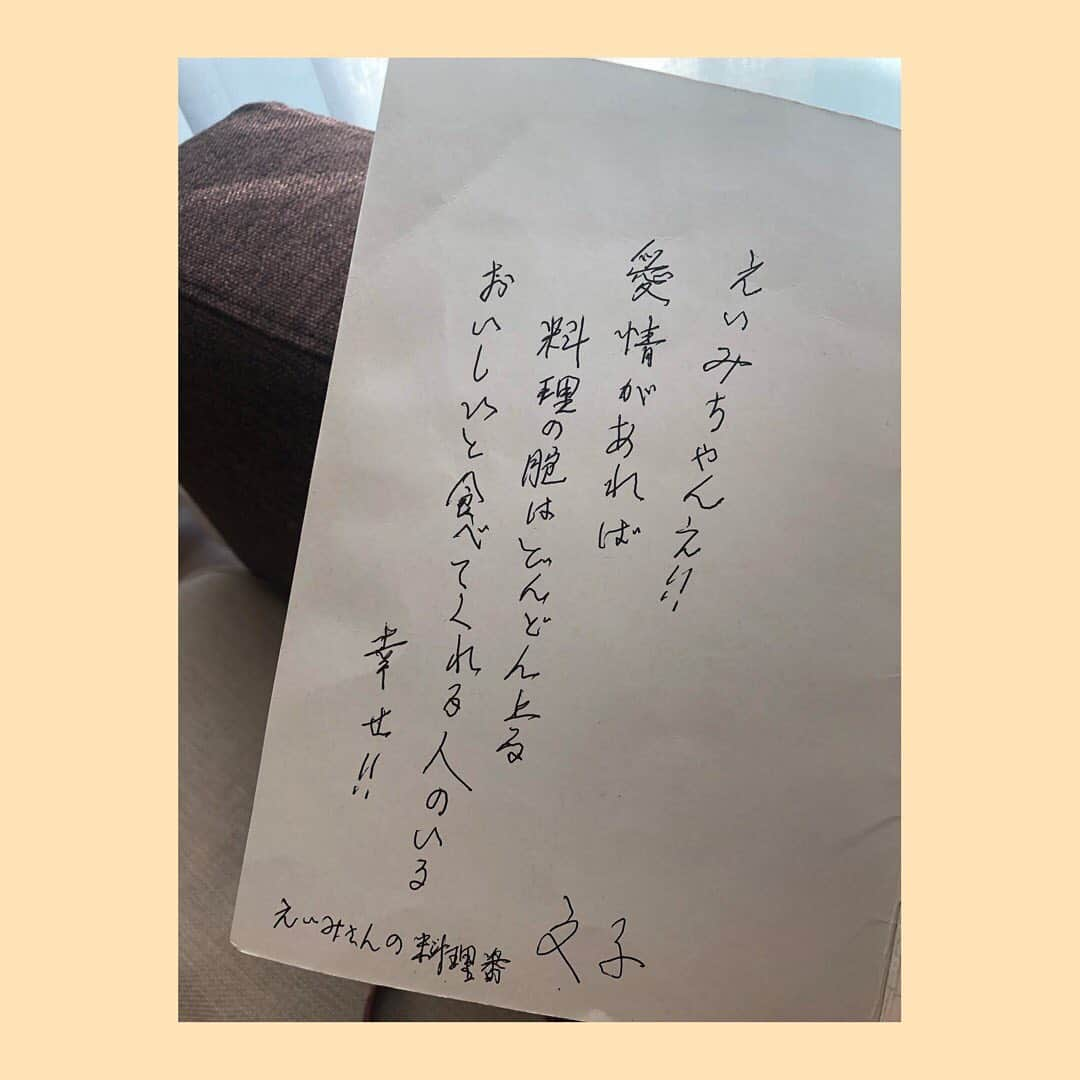 えいみちゃんえ!!
愛情があれば
料理の腕はどんどん上る
おいしいと食べてくれる人のいる
幸せ!!
えいみさんの料理番
文子